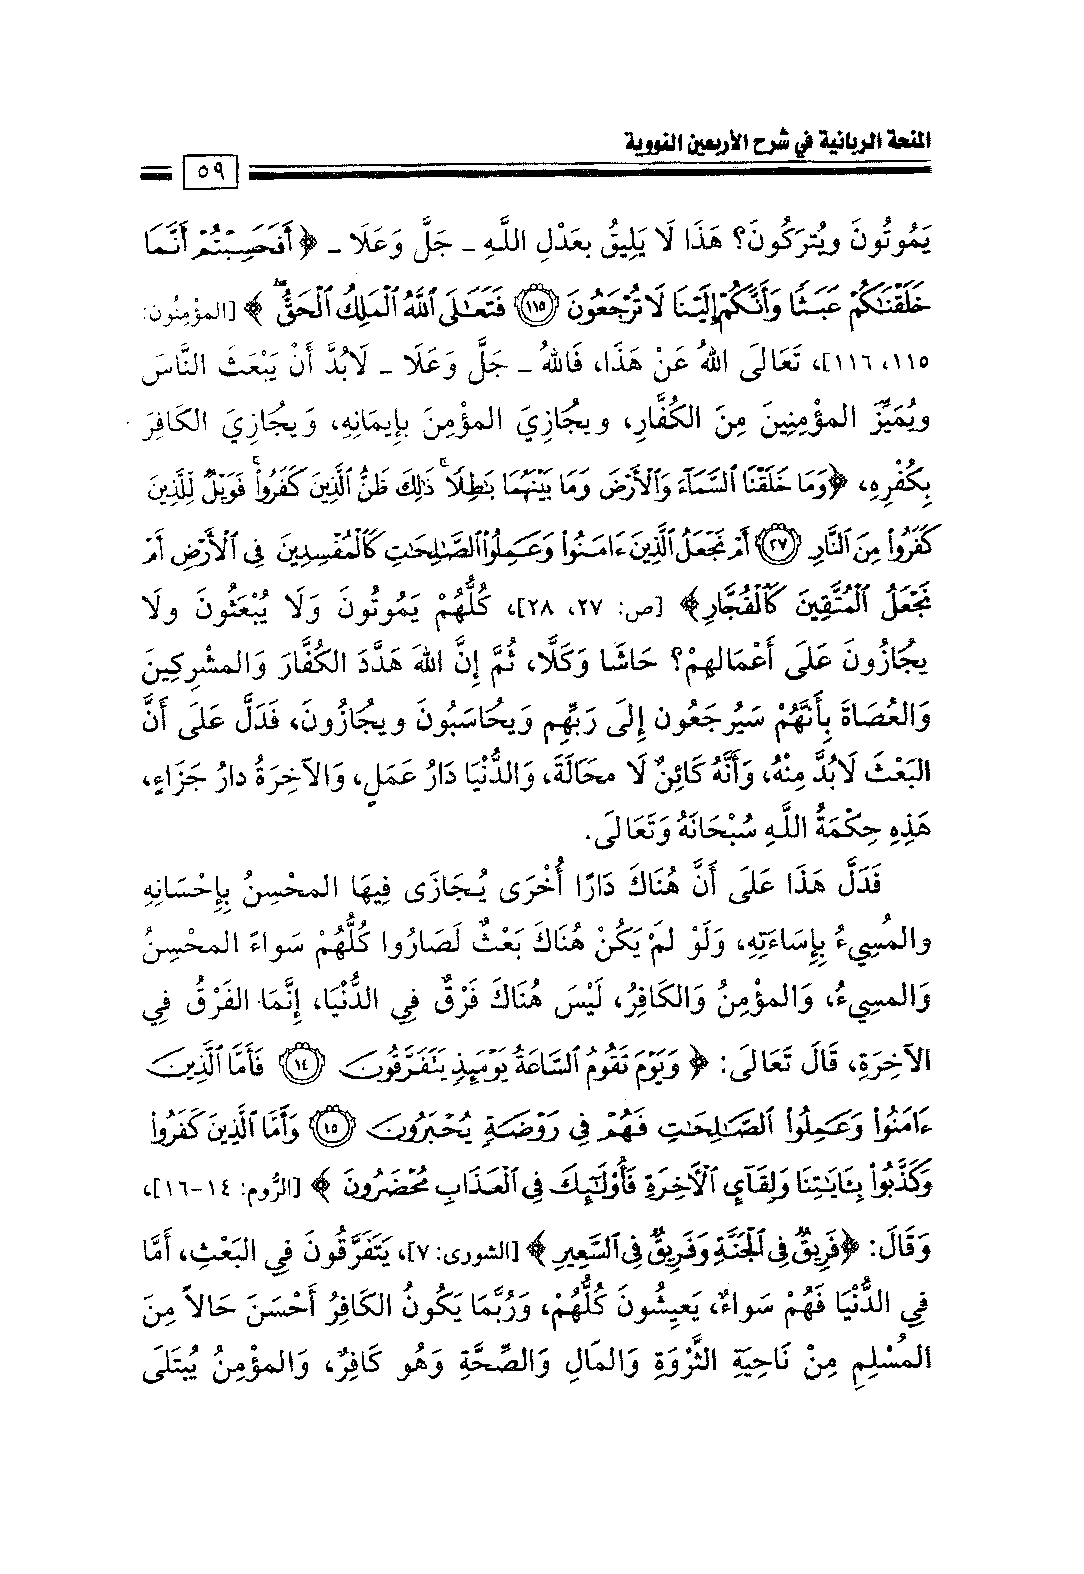 المنحة الربانية في شرح الأربعين النووية
٥٩
يَمُوتُونَ ويُتركُونَ؟ هَذَا لَا يَلِيقُ بعَدْلِ اللَّهِ ـ جَلَّ وَعَلَا ـ ﴿أَفَحَسِبْتُمْ أَنَّمَا
خَلَقْنَٰكُمْ عَبَثًا وَأَنَّكُمْ إِلَيْنَا لَا تُرْجَعُونَ ﴿١١٥﴾ فَتَعَٰلَى ٱللَّهُ ٱلْمَلِكُ ٱلْحَقُّ ۖ﴾ [المؤمِنُون:
١١٥، ١١٦]، تَعَالَى اللهُ عَنْ هَذَا، فَاللهُ ـ جَلَّ وَعَلَا ـ لَابُدَّ أَنْ يَبْعَثَ النَّاسَ
ويُمَيِّزَ المؤْمِنِينَ مِنَ الكُفَّارِ، ويجُازِيَ المؤْمِنَ بإِيمَانِهِ، وَيجُازِيَ الكَافِرَ
بِكُفْرِهِ، ﴿وَمَا خَلَقْنَا ٱلسَّمَآءَ وَٱلْأَرْضَ وَمَا بَيْنَهُمَا بَٰطِلًا ۚ ذَٰلِكَ ظَنُّ ٱلَّذِينَ كَفَرُوا۟ ۚ فَوَيْلٌ لِّلَّذِينَ
كَفَرُوا۟ مِنَ ٱلنَّارِ ﴿٢٧﴾ أَمْ نَجْعَلُ ٱلَّذِينَ ءَامَنُوا۟ وَعَمِلُوا۟ ٱلصَّٰلِحَٰتِ كَٱلْمُفْسِدِينَ فِى ٱلْأَرْضِ أَمْ
نَجْعَلُ ٱلْمُتَّقِينَ كَٱلْفُجَّارِ﴾ [ص: ٢٧، ٢٨]، كُلُّهُمْ يَمُوتُونَ وَلَا يُبْعَثُونَ ولَا
يجُازُونَ عَلَى أَعْمَالهِمْ؟ حَاشَا وَكَلَّا، ثُمَّ إِنَّ اللهَ هَدَّدَ الكُفَّارَ وَالمشْرِكِينَ
وَالعُصَاةَ بِأَنَّهُمْ سَيُرجَعُون إِلَى رَبِّهِم وَيحُاسَبُونَ ويجُازُونَ، فَدَلَّ عَلَى أَنَّ
البَعْثَ لَابُدَّ مِنْهُ، وَأَنَّهُ كَائِنٌ لَا محَالَةَ، وَالدُّنْيَا دَارُ عَمَلٍ، وَالآخِرَةُ دارُ جَزَاءٍ،
هَذِهِ حِكْمَةُ اللَّهِ سُبْحَانَهُ وَتَعَالَى.
فَدَلَّ هَذَا عَلَى أَنَّ هُنَاكَ دَارًا أُخْرَى يُجَازَى فِيهَا المحْسِنُ بِإِحْسَانِهِ
والمُسِيءُ بِإِسَاءَتِهِ، وَلَوْ لمْ يَكُنْ هُنَاكَ بَعْثٌ لَصَارُوا كُلُّهُمْ سَواءً المحْسِنُ
وَالمسِيءُ، وَالمؤْمِنُ وَالكَافِرُ، لَيْسَ هُنَاكَ فَرْقٌ فِي الدُّنْيَا، إِنَّمَا الفَرْقُ فِي
الآخِرَةِ، قَالَ تَعَالَى: ﴿وَيَوْمَ تَقُومُ ٱلسَّاعَةُ يَوْمَئِذٍ يَتَفَرَّقُونَ ﴿١٤﴾ فَأَمَّا ٱلَّذِينَ
ءَامَنُوا۟ وَعَمِلُوا۟ ٱلصَّٰلِحَٰتِ فَهُمْ فِى رَوْضَةٍ يُحْبَرُونَ ﴿١٥﴾ وَأَمَّا ٱلَّذِينَ كَفَرُوا۟
وَكَذَّبُوا۟ بِـَٔايَٰتِنَا وَلِقَآئِ ٱلْـَٔاخِرَةِ فَأُو۟لَٰٓئِكَ فِى ٱلْعَذَابِ مُحْضَرُونَ﴾ [الرُّوم: ١٤-١٦]،
وَقَالَ: ﴿فَرِيقٌ فِى ٱلْجَنَّةِ وَفَرِيقٌ فِى ٱلسَّعِيرِ﴾ [الشورى: ٧]، يَتَفَرَّقُونَ فِي البَعْثِ، أَمَّا
فِي الدُّنْيَا فَهُمْ سَواءٌ، يَعِيشُونَ كُلُّهُمْ، وَرُبَّمَا يَكُونُ الكَافِرُ أَحْسَنَ حَالاً مِنَ
المُسْلِمِ مِنْ نَاحِيَةِ الثَّرْوَةِ وَالمَالِ وَالصِّحَّةِ وَهُو كَافِرٌ، وَالمؤْمِنُ يُبْتَلَى